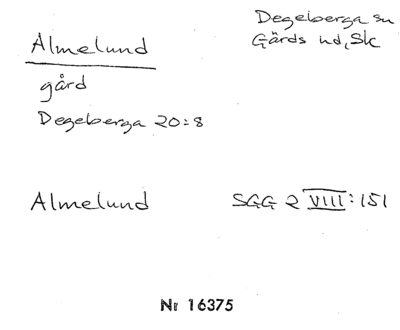 Almelund
Degeberga sn
Gärds hd, Sk
gård
Degeberga 20:8
Almelund
SGG 2 VIII:151
Nr 16375